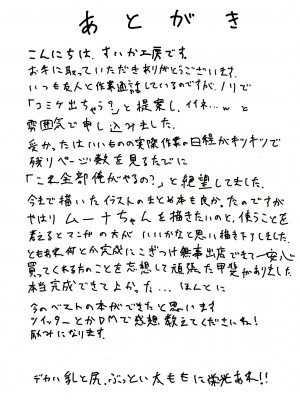 あとがき
こんにちは、すいか工房です。
お手に取っていただきありがとうございます。
いつも友人と作業通話しているのですが、ノリで
「コミケ出ちゃう?」と提案し、イイネ…w と
雰囲気で申し込みました。
受かったはいいものの実際作業の日程がキツキツで
残りページ数を見るたびに
「これ全部俺がやるの?」と絶望してました。
今まで描いたイラストのまとめ本も良かったのですが
やはりムーナちゃんを描きたいのと、使うことを
考えるとマンガの方がいいかなと思い描き下しました。
ともあれ何とか完成にこぎつけ無事出店できて一安心
買ってくれる方のことを妄想して頑張た甲斐がありました。
本当完成できてよかった… ほんとに
今のベストの本ができたと思います
ツイッターとかDMで感想教えてくださいね!
励みになります。
デカい乳と尻、ぶっとい太ももに栄光あれ!!